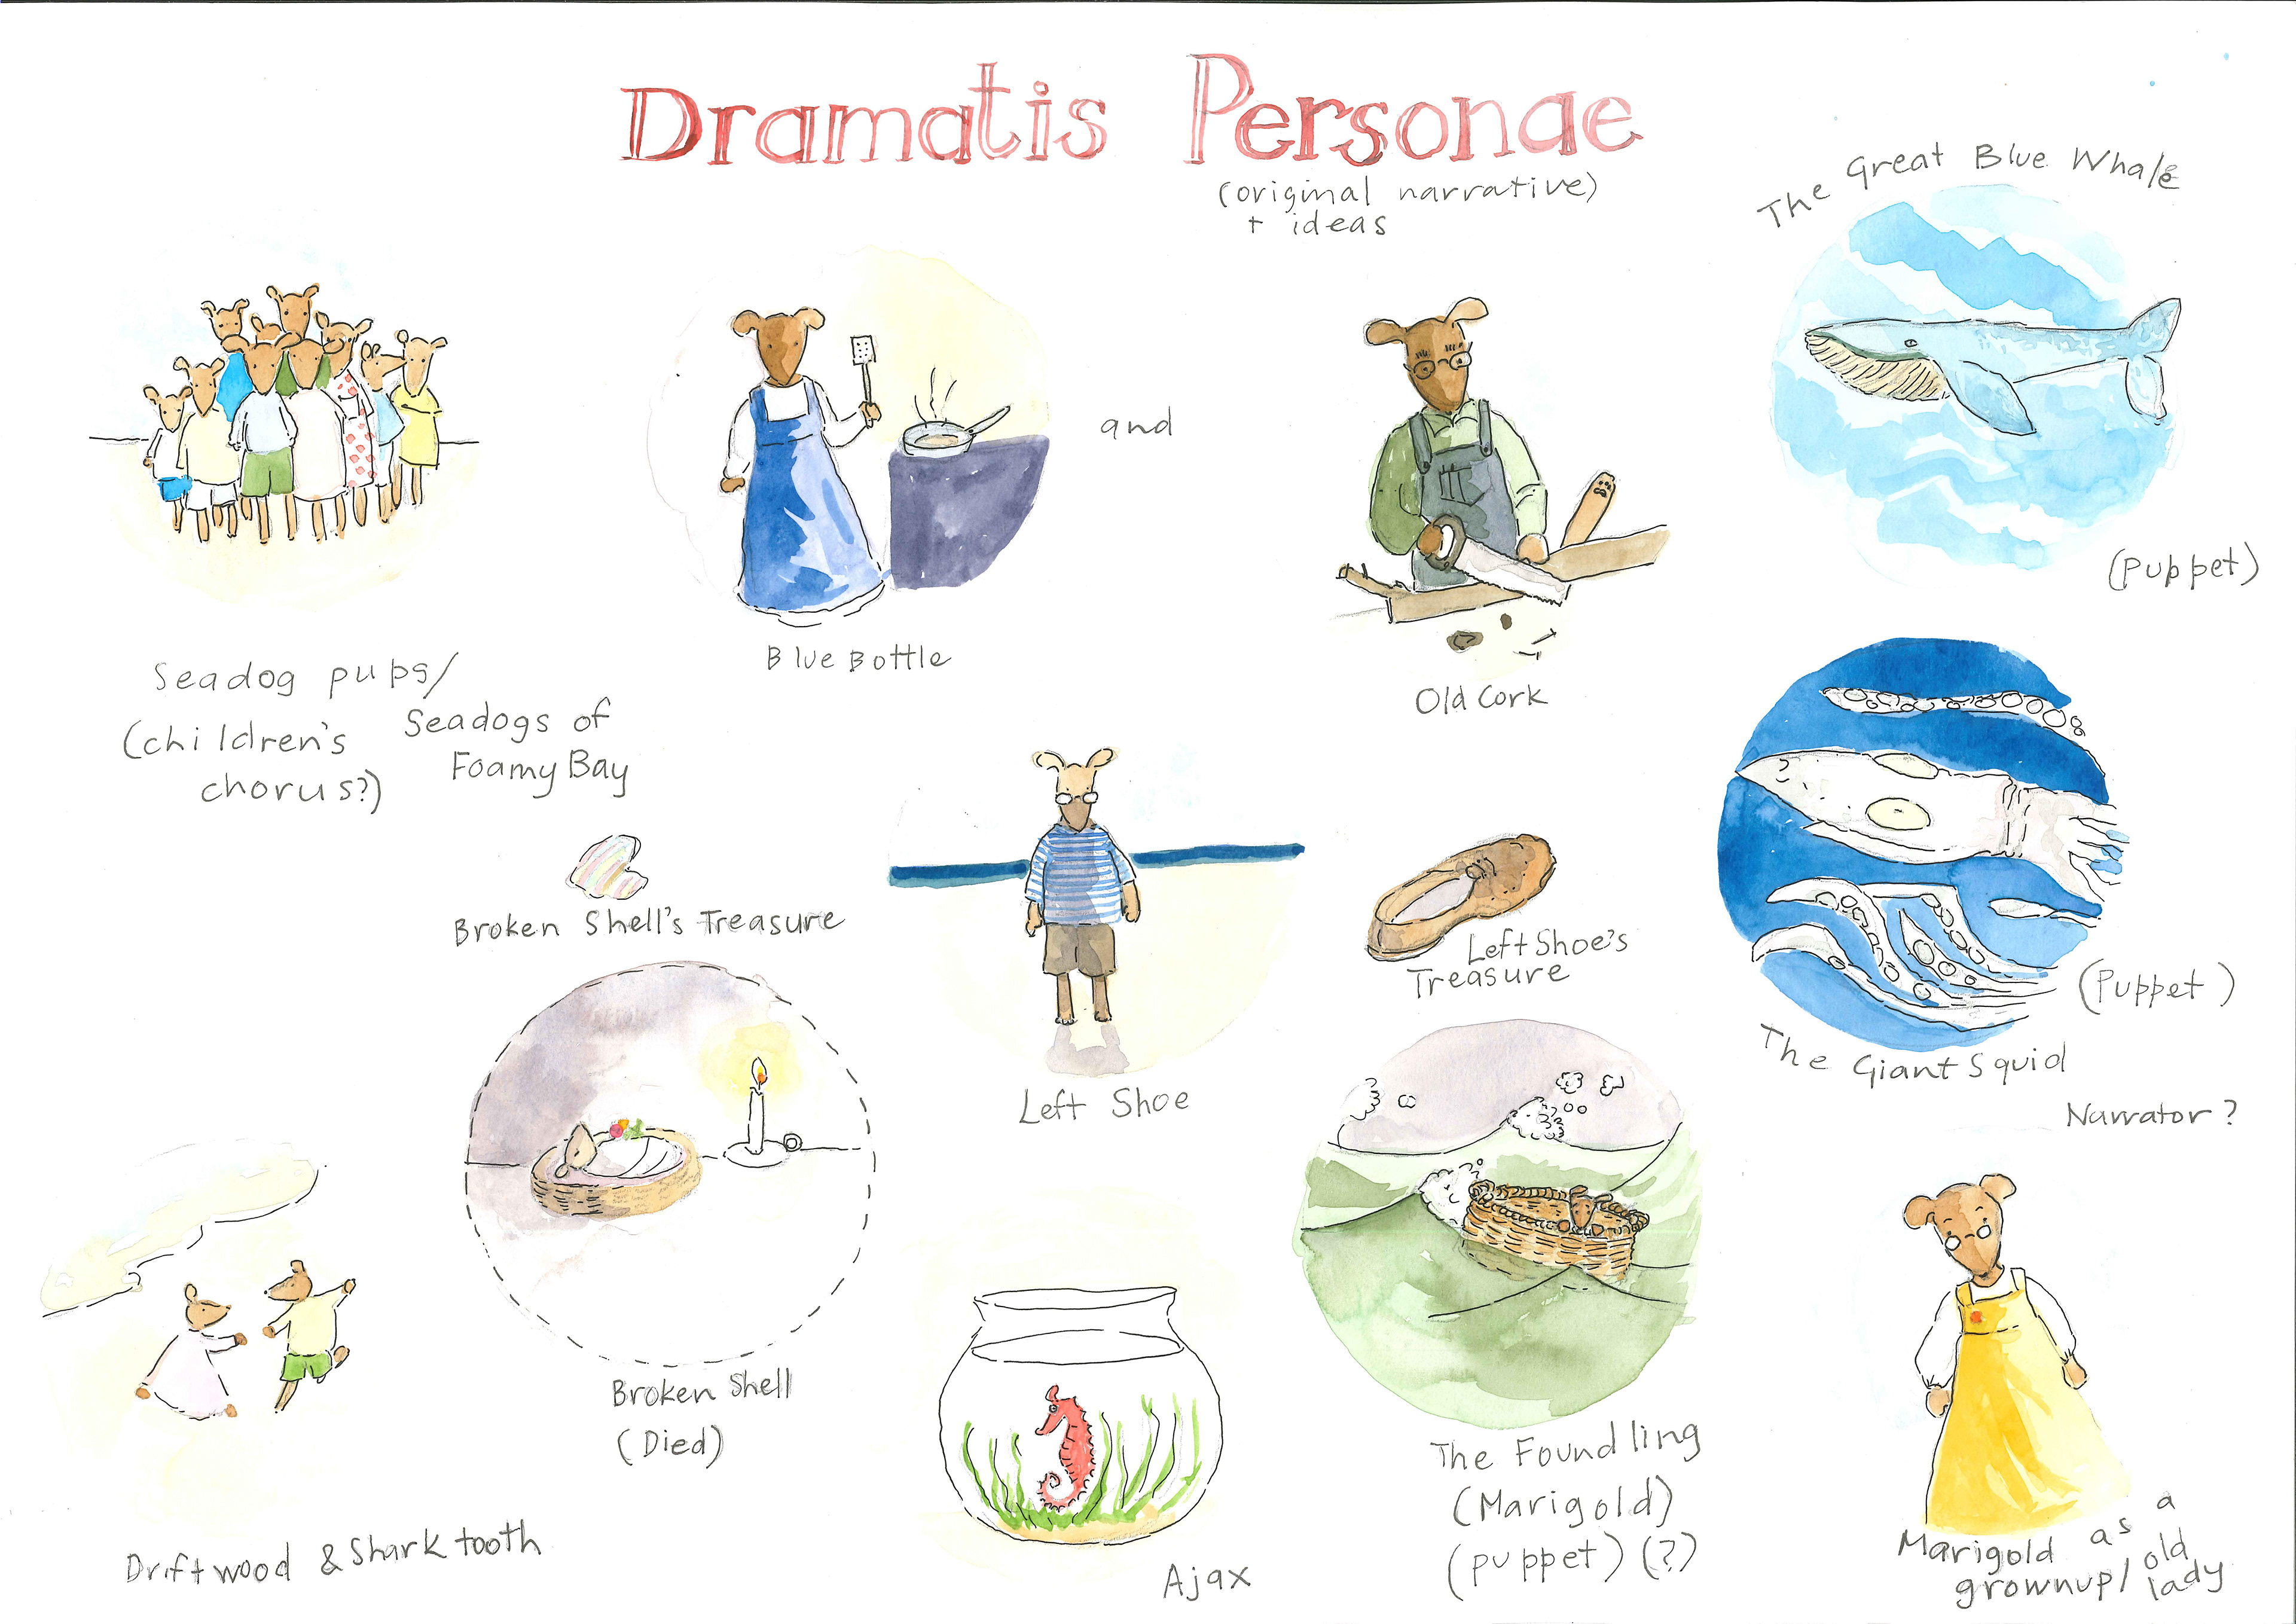 Dramatis Personae
(original narrative)
+ ideas
The Great Blue Whale
(puppet)
and
Blue Bottle
Old Cork
Seadog pups/
(children's
chorus?)
Seadogs of
Foamy Bay
Broken Shell's Treasure
Left Shoe's
Treasure
(Puppet)
The Giant Squid
Left Shoe
Narrator?
Broken Shell
(Died)
The Foundling
(Marigold)
(puppet) (?)
Driftwood & Shark tooth
Ajax
Marigold as a
grownup/ old
lady